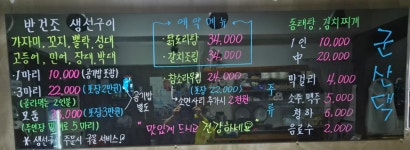 반건조 생선구이
가자미, 꼬지, 볼락, 상대
고등어, 민어, 장대, 밤대
1마리 10,000 (공기밥 포함)
3마리 22,000 (포장 2만원)
(골라먹는 2인분)
모듬 35,000 (포장 3만원)
5마리
※ 생선구이 주문시 국물 서비스
공기밥 별도
예약메뉴
닭도리탕 34,000
갈치조림 34,000
참소라무침 24,000
(포장 22,000)
* 소면사리 추가시 2천원
"맛있게 드시고 건강하세요"
동태탕, 김치찌개
1인 10,000
中 20,000
주류
막걸리 4,000
소주, 맥주 5,000
청하 6,000
음료수 2,000
군산댁